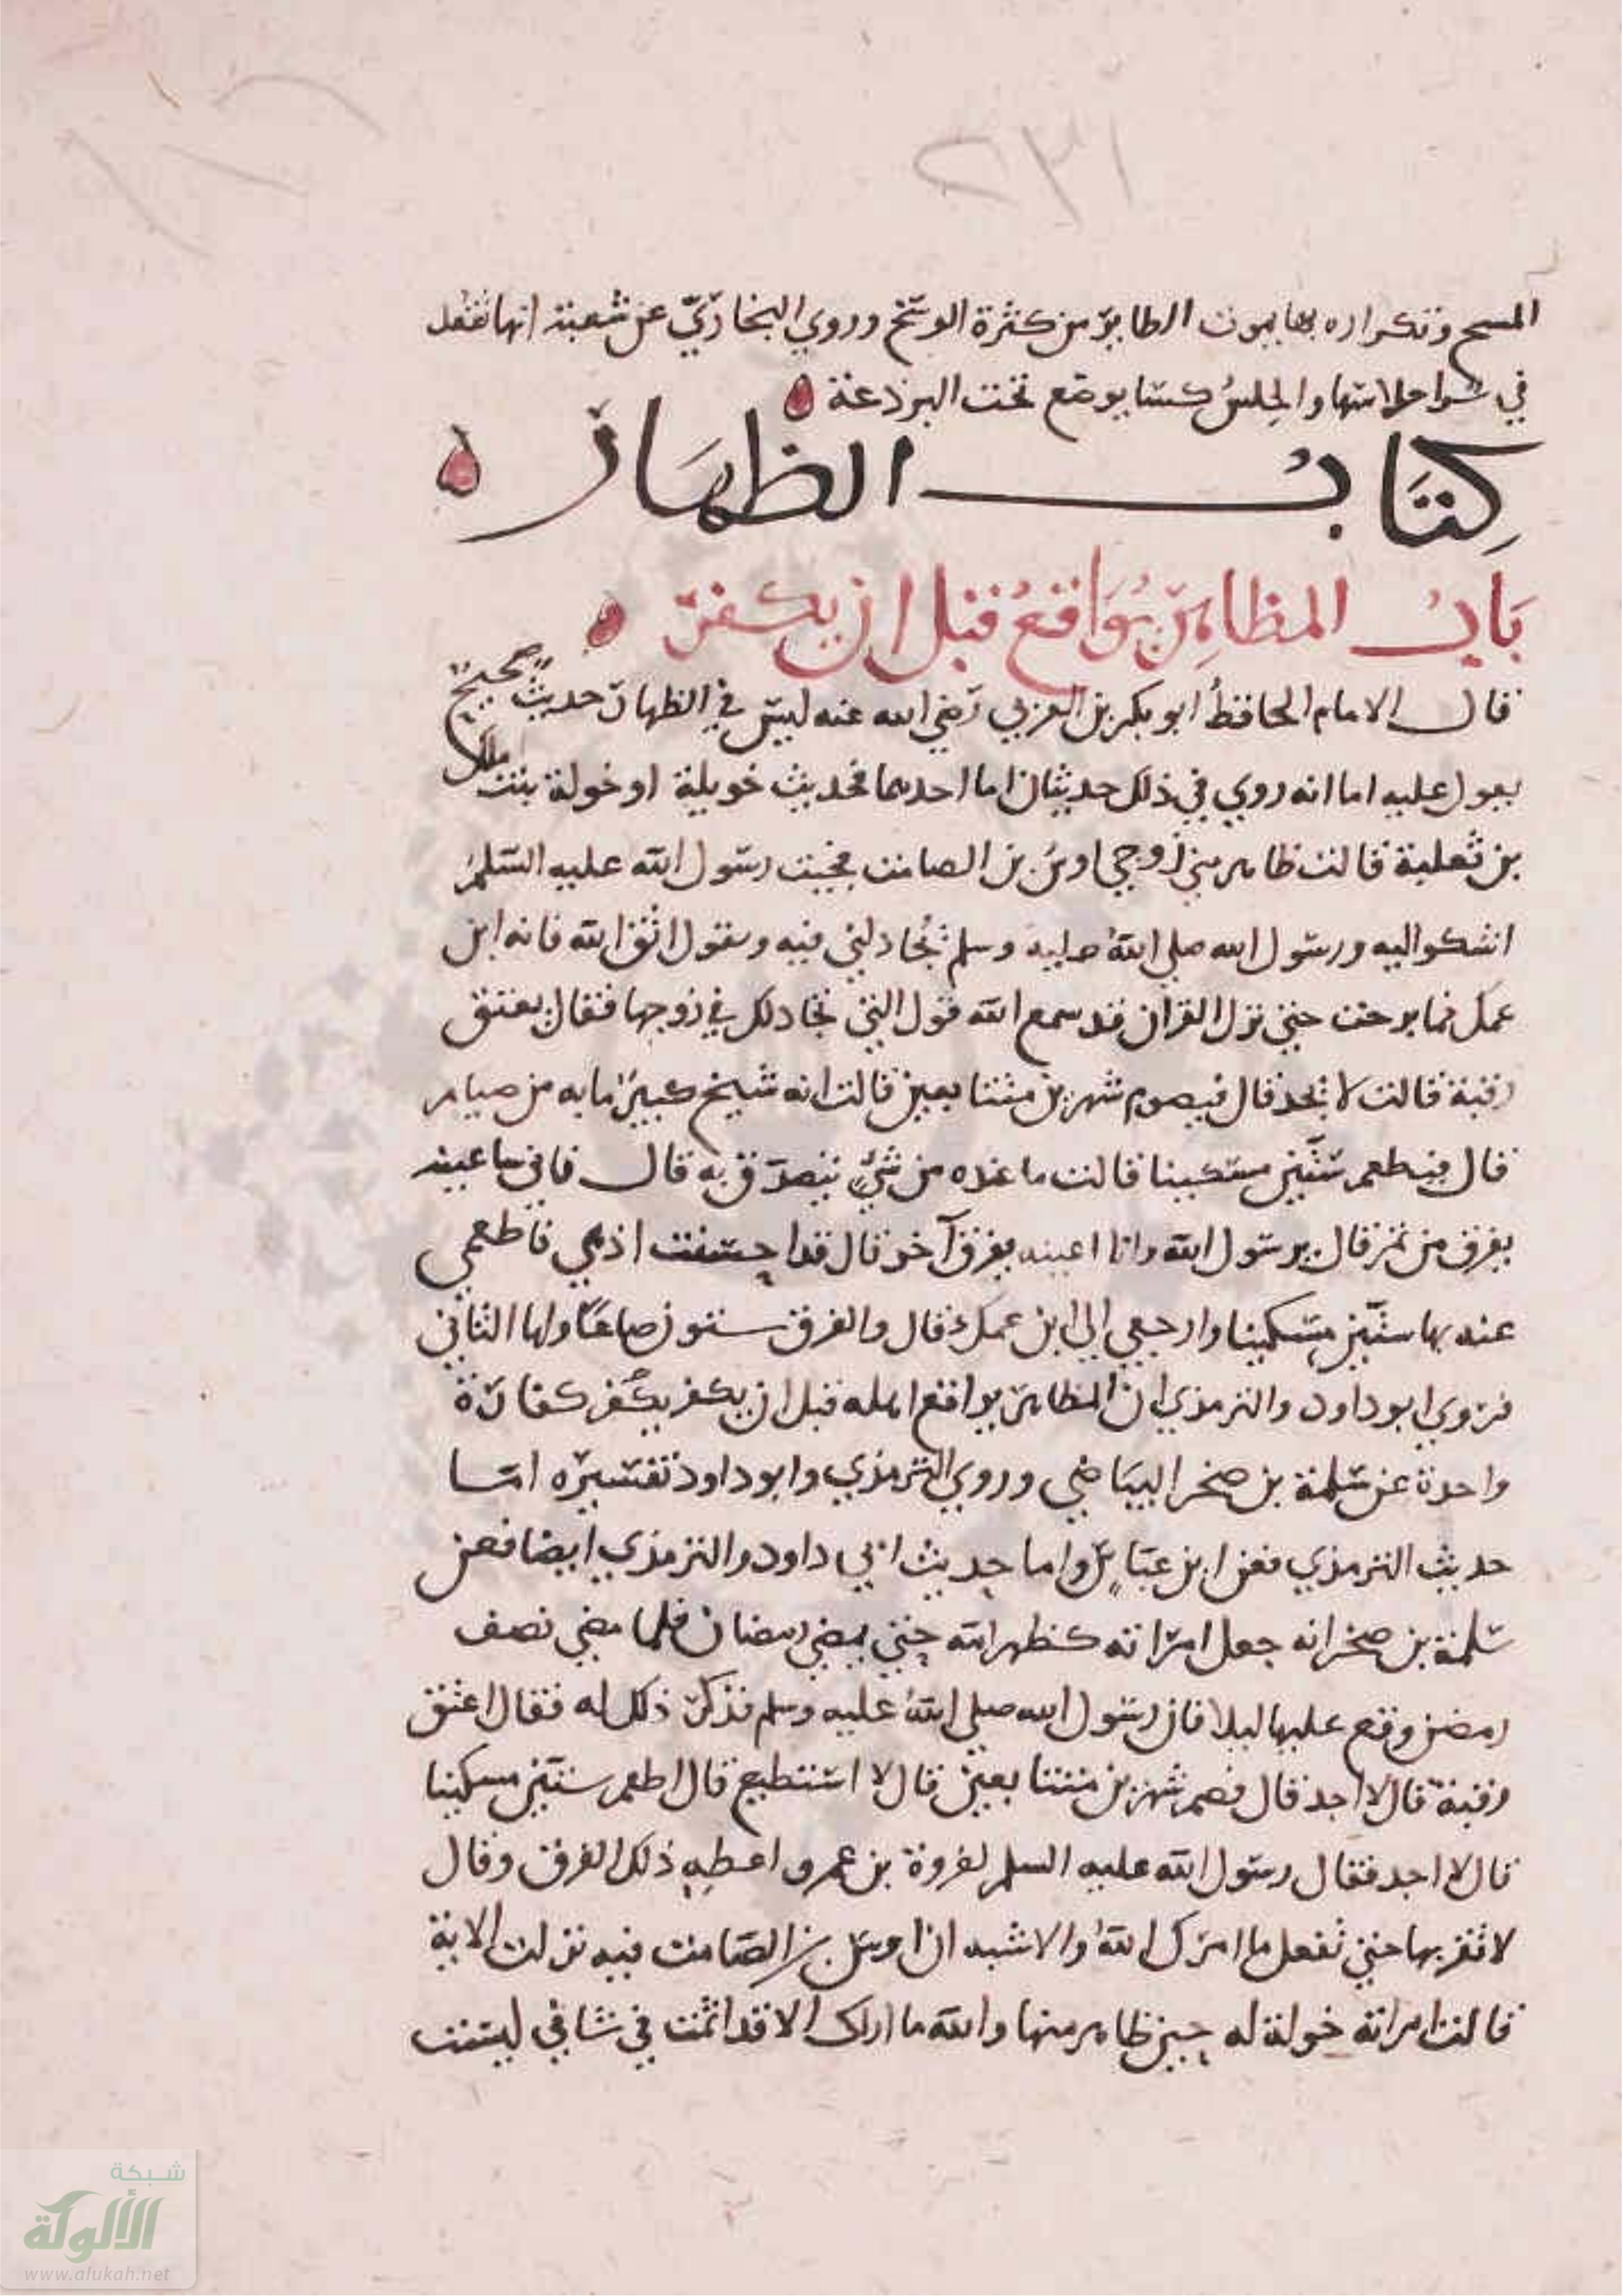 ٢٣١
المسح وتكراره بها يموت الطاير من كثرة الوسخ وروي البخاري عن شعبة انها تفعل
في شر احلاسها والحلس كسا يوضع تحت البرذعة
كتاب الظهار
باب المظاهر يواقع قبل ان يكفر
قال الامام الحافظ ابو بكر بن العربي رضي الله عنه ليس في الظهار حديث صحيح
يعول عليه اما انه روي في ذلك حديثان اما احدهما فحديث خويلة او خولة بنت ملك
بن ثعلبة قالت ظاهر مني زوجي اوس بن الصامت فجيت رسول الله عليه السلم
اشكوا اليه ورسول الله صلى الله عليه وسلم يجادلني فيه ويقول اتق الله فانه ابن
عمك فما برحت حتى نزل القران قد سمع الله قول التي تجادلك في زوجها فقال يعتق
رقبة قالت لا يجد قال فيصوم شهرين متتابعين قالت انه شيخ كبير ما به من صيام
قال فيطعم ستين مسكينا قالت ما عنده من شيء يتصدق به قال فاني ساعينه
بفرق من تمر قال يرسول الله وانا اعينه بفرق آخر قال قد احسنت اذهبي فاطعمي
عنه بها ستين مسكينا وارجعي الى ابن عمك قال والفرق ستون صاعا واما الثاني
فروي ابو داود والترمذي ان المظاهر يواقع اهله قبل ان يكفر يكفر كفارة
واحدة عن سلمة بن صخر البياضي وروي الترمذي وابو داود تفسيره اما
حديث الترمذي فعن ابن عباس واما حديث ابي داود والترمذي ايضا فعن
سلمة بن صخر انه جعل امراته كظهر امه حتى يمضي رمضان فلما مضى نصف
رمضن وقع عليها ليلا فاتى رسول الله صلى الله عليه وسلم فذكر ذلك له فقال اعتق
رقبة قال لا اجد قال فصم شهرين متتابعين قال لا استطيع قال اطعم ستين مسكينا
قال لا اجد فقال رسول الله عليه السلم لفروة بن عمرو اعطه ذلك الفرق وقال
لا تقربها حتى تفعل ما امرك الله والاشبه ان اوس بن الصامت فيه نزلت الاية
قالت امراته خولة له حين ظاهر منها والله ما اراك الا قد اثمت في شاني لبست
شبكة
الألوكة
www.alukah.net